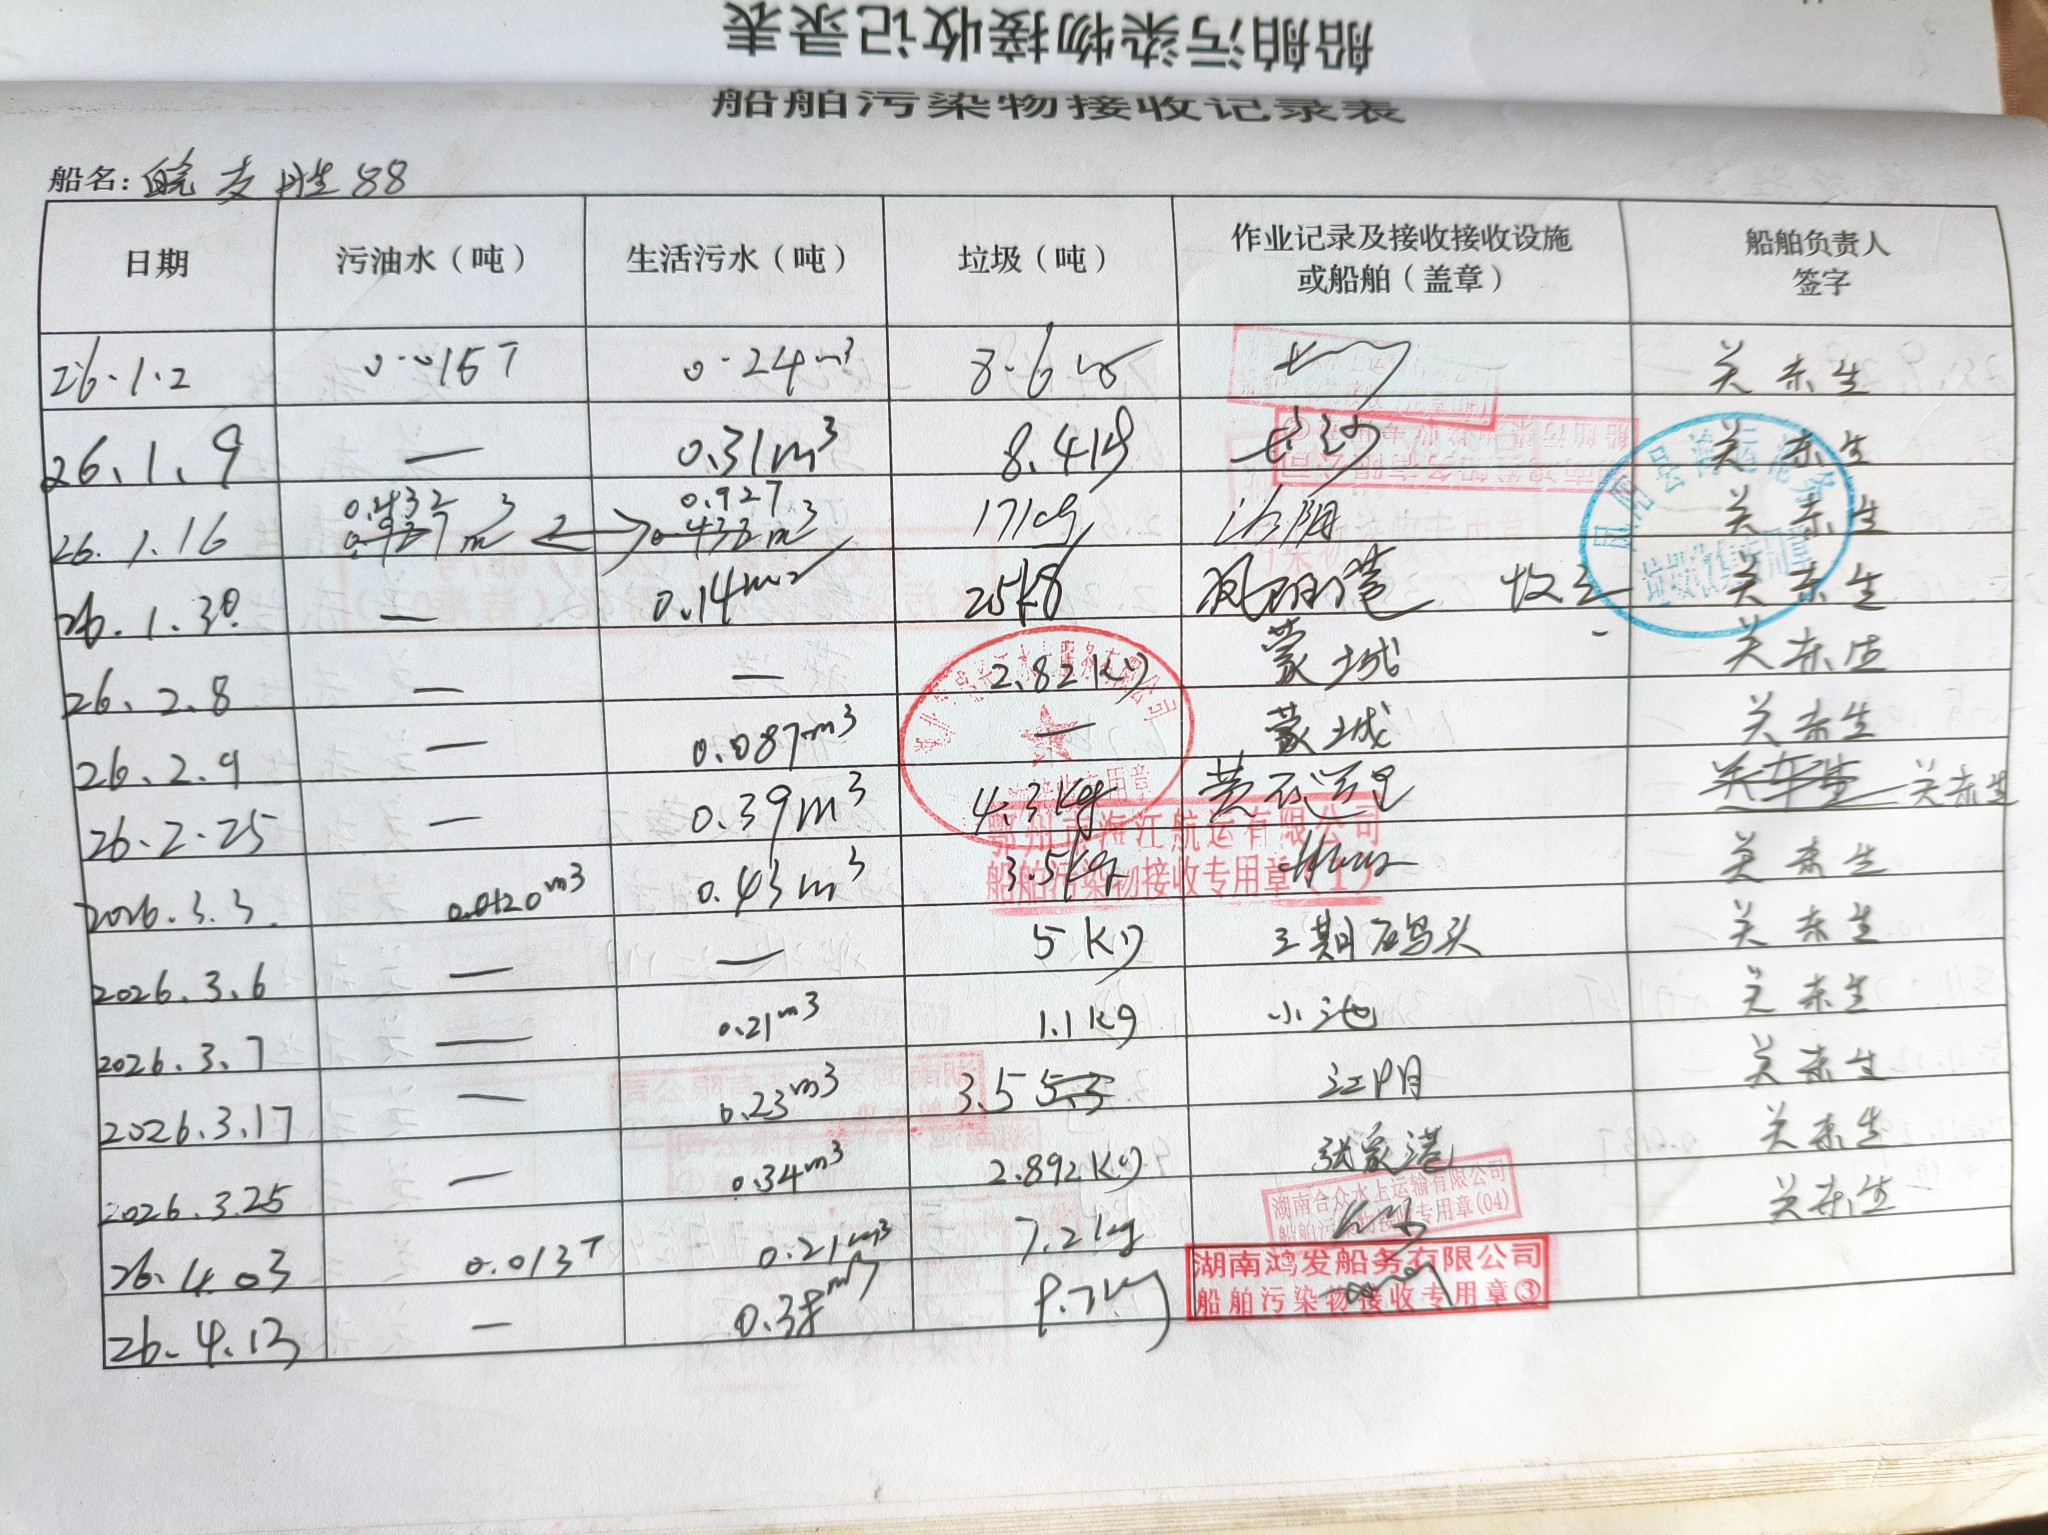 船舶污染物接收记录表
船舶污染物接收记录表
船名: 皖友胜88
日期 污油水（吨） 生活污水（吨） 垃圾（吨） 作业记录及接收接收设施或船舶（盖章） 船舶负责人签字
26.1.2 0.015T 0.24m³ 8.6kg 长沙 关东生
26.1.9 — 0.31m³ 8.4kg 长沙 关东生
26.1.16 0.432 0.927m³ 0.927 0.432m³ 17kg 关东生
26.1.30 — 0.14m³ 25kg 关东生
26.2.8 — — 2.82kg 蒙城 关东生
26.2.9 — 0.087m³ — 蒙城 关东生
26.2.25 — 0.39m³ 4.3kg 关东生 关东生
2026.3.3. 0.0120m³ 0.43m³ 3.5kg 关东生
2026.3.6 — — 5kg 三期石码头 关东生
2026.3.7 — 0.21m³ 1.1kg 小池 关东生
2026.3.17 — 0.23m³ 3.5 5.3 江阴 关东生
2026.3.25 — 0.34m³ 2.892kg 张家港 关东生
26.4.03 0.013T 0.21m³ 7.2kg 长沙 关东生
26.4.13 — 0.38m³
凤阳县海运港务
垃圾收集专用章
鄂州市海江航运有限公司
船舶污染物接收专用章(1)
湖南合众水上运输有限公司
船舶污染物接收专用章(04)
湖南鸿发船务有限公司
船舶污染物接收专用章③